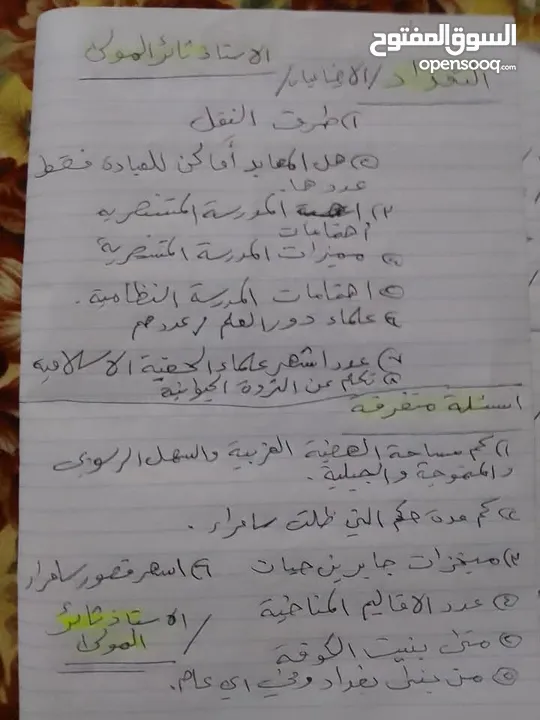 السوق المفتوح
opensooq.com
الاستاذ ثائر الموكي
التعداد / الاجابات /
١) طرق النقل
٢) هل المعابد أماكن للعبادة فقط
عددها.
٣) المدرسة المستنصرية
اهتمامات
مميزات المدرسة المستنصرية
٥) اهتمامات المدرسة النظامية .
٦) علماء دور العلم / عددهم
٧) عدد اشهر علماء الحقبة الاسلامية
٨) تكلم عن الثروة الحيوانية
اسئلة متفرقة
١) كم مساحة الهضبة الغربية والسهل الرسوبي
والمتموجة والجبلية .
٢) كم مدة حكم التي ظلت سامراء .
٣) منجزات جابر بن حيان ٦) اشهر قصور سامراء
٤) عدد الاقاليم المناخية
٥) متى بنيت الكوفة
٥) من بنى بغداد وفي اي عام .
الاستاذ ثائر
الموكي